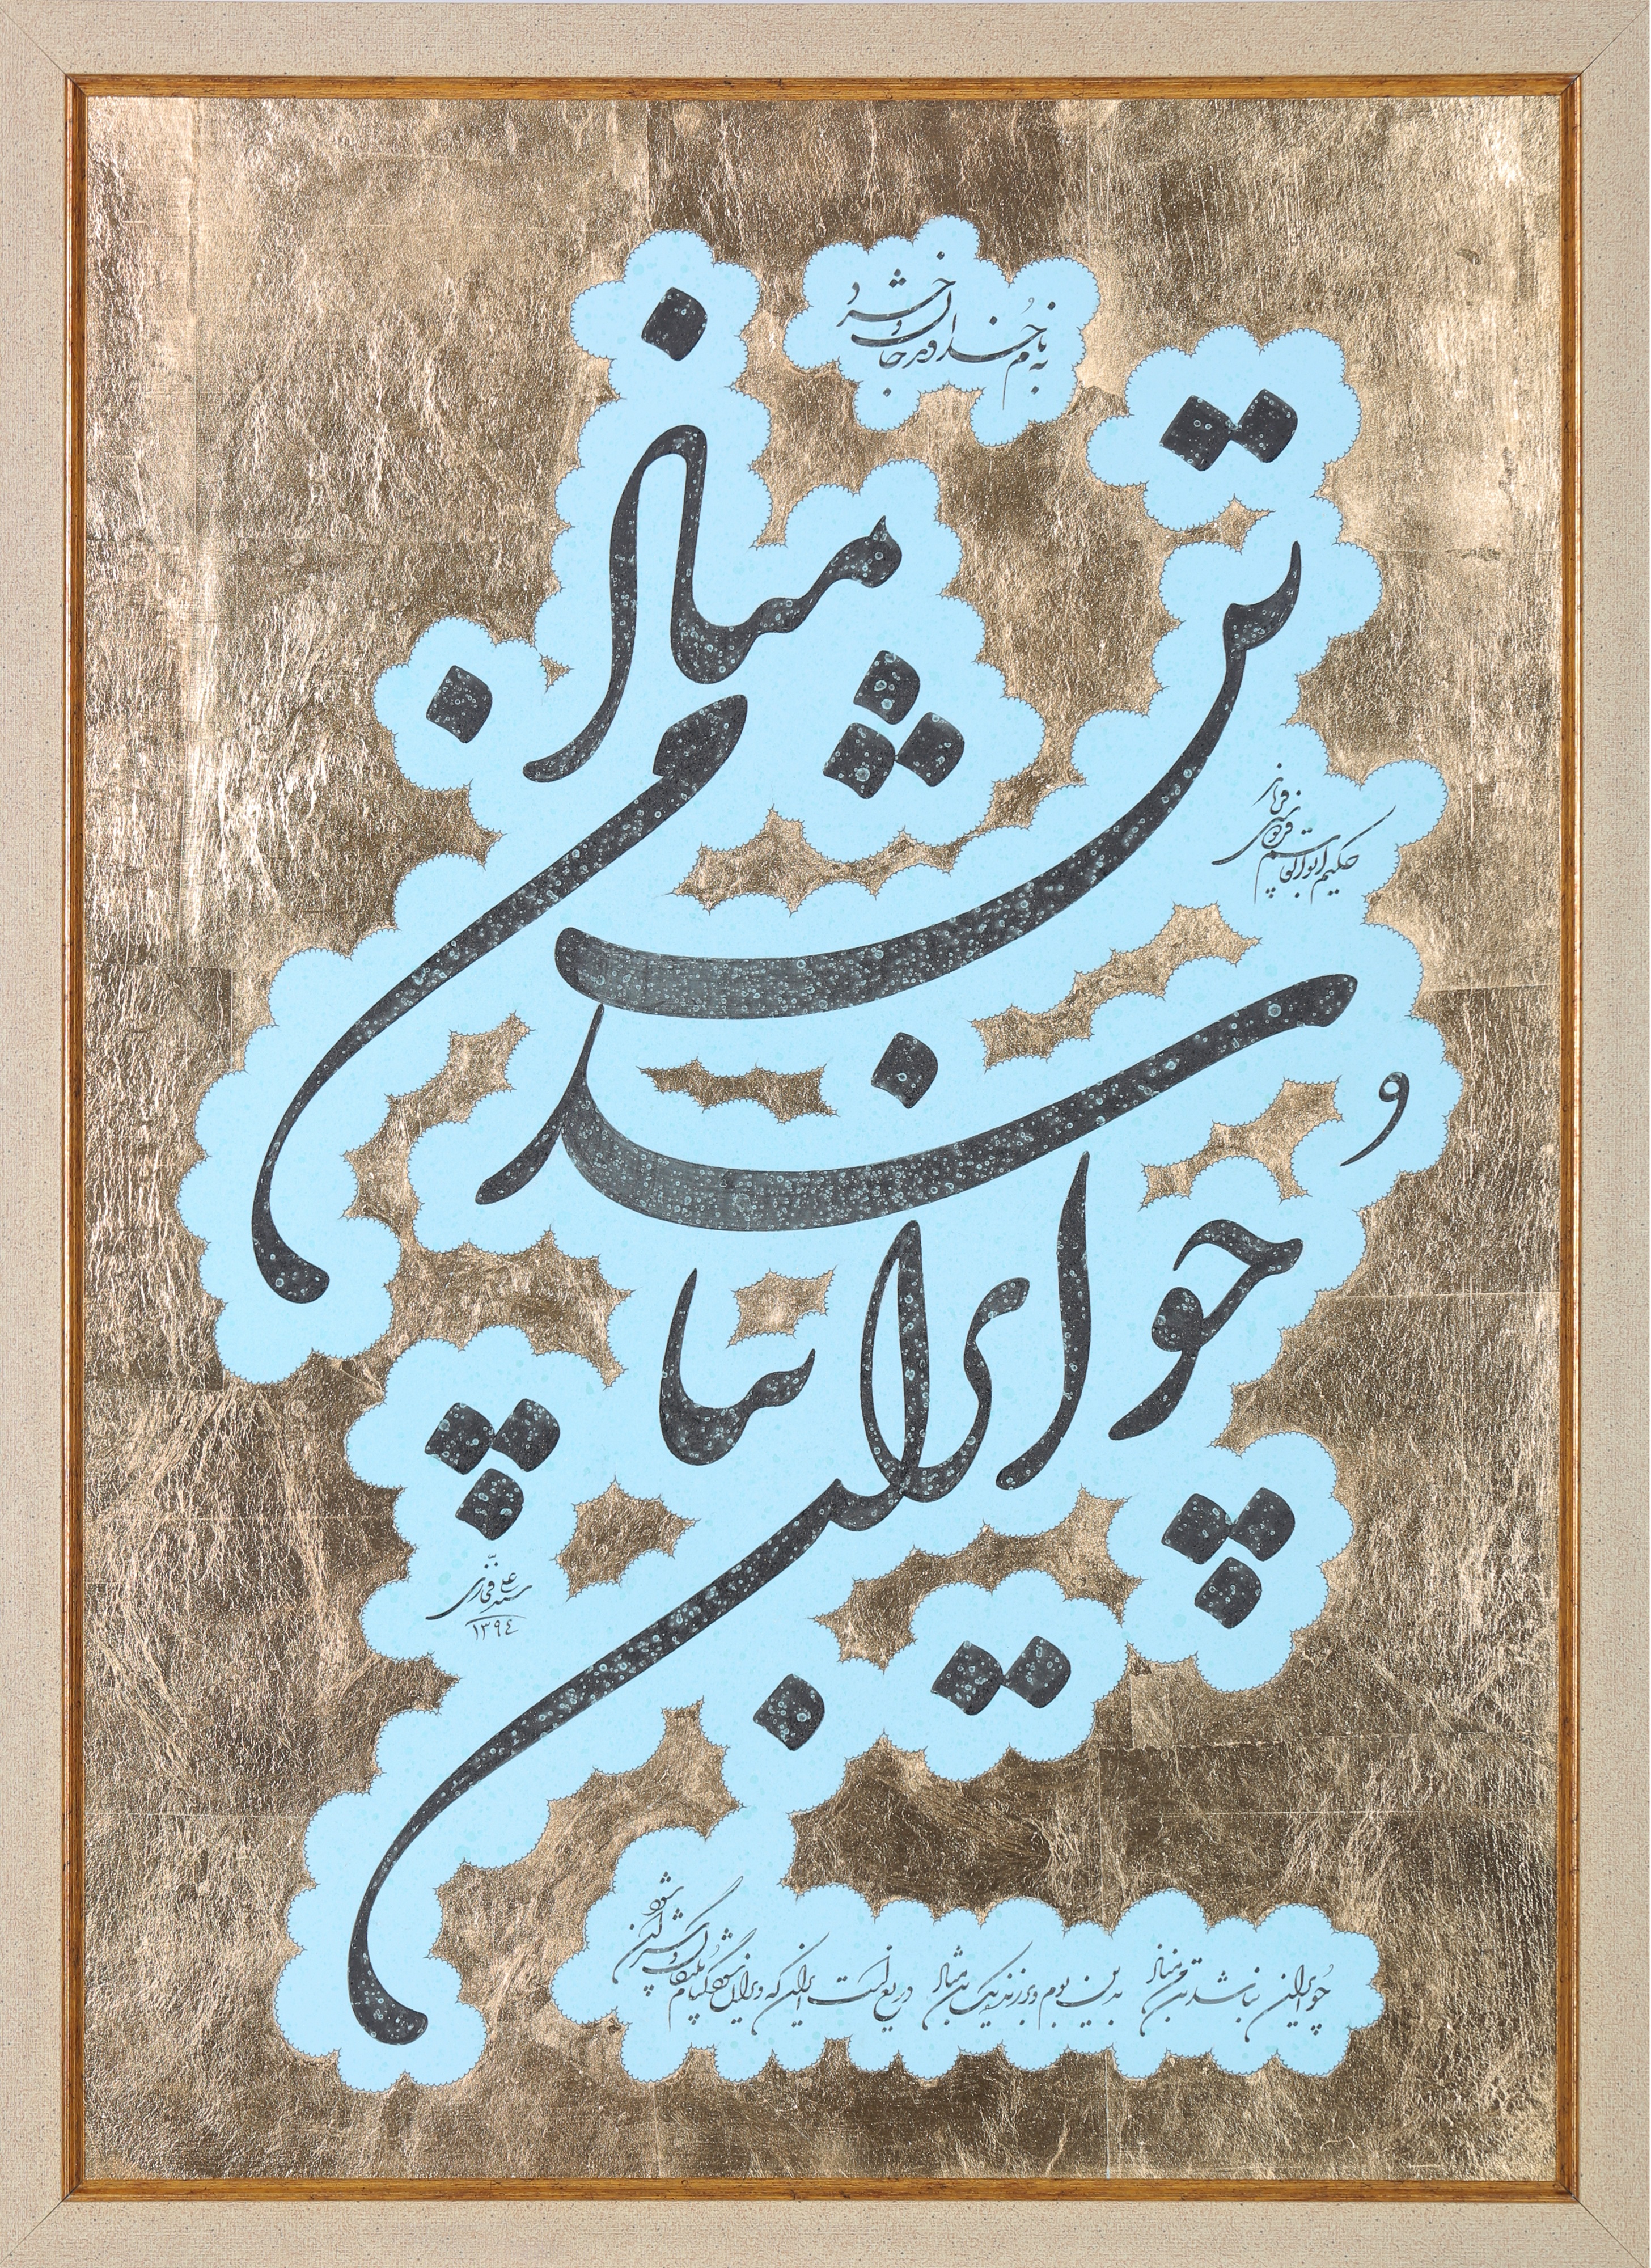 به نام خداوند جان و خرد
حکیم ابوالقاسم فردوسی
چو ایران نباشد تن من مباد
سید علی
۱۳۹۴
چو ایران نباشد تن من مباد بدین بوم و بر زنده یک تن مباد دریغ است ایران که ویران شود کنام پلنگان و شیران شود